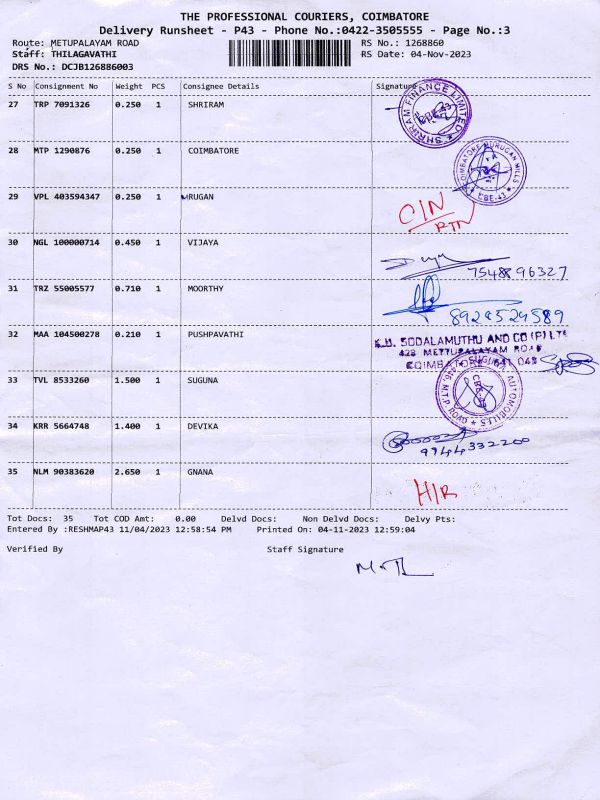 THE PROFESSIONAL COURIERS, COIMBATORE
Delivery Runsheet - P43 - Phone No.:0422-3505555 - Page No.:3
Route: METUPALAYAM ROAD RS No.: 1268860
Staff: THILAGAVATHI RS Date: 04-Nov-2023
DRS No.: DCJB126886003
S No Consignment No Weight PCS Consignee Details Signature
27 TRP 7091326 0.250 1 SHRIRAM
SHRIRAM FINANCE LIMITED
28 MTP 1290876 0.250 1 COIMBATORE
COIMBATORE MURUGAN MILLS
CBE-43
29 VPL 403594347 0.250 1 MRUGAN
CIN
RTN
30 NGL 100000714 0.450 1 VIJAYA
7548896327
31 TRZ 55005577 0.710 1 MOORTHY
8928524589
32 MAA 104500278 0.210 1 PUSHPAVATHI
SODALAMUTHU AND CO (P) LTD
428 METTUPALAYAM ROAD
COIMBATORE 641 043
33 TVL 8533260 1.500 1 SUGUNA
SUGUNA AUTOMOBILES
M.T.P. ROAD
34 KRR 5664748 1.400 1 DEVIKA
9944332200
35 NLM 90383620 2.650 1 GNANA
H/R
Tot Docs: 35 Tot COD Amt: 0.00 Delvd Docs: Non Delvd Docs: Delvy Pts:
Entered By :RESHMAP43 11/04/2023 12:58:54 PM Printed On: 04-11-2023 12:59:04
Verified By Staff Signature